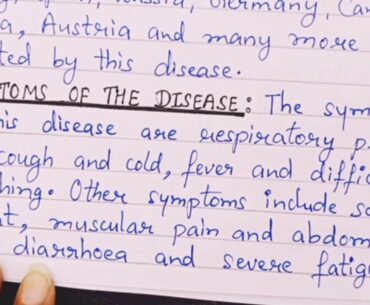 Russia, Germany, Can
a, Austria and many more
ted by this disease.
TOMS OF THE DISEASE: The sym
his disease are respiratory p
cough and cold, fever and diffic
hing. Other symptoms include so
at, muscular pain and abdom
diarrhoea and severe fatig